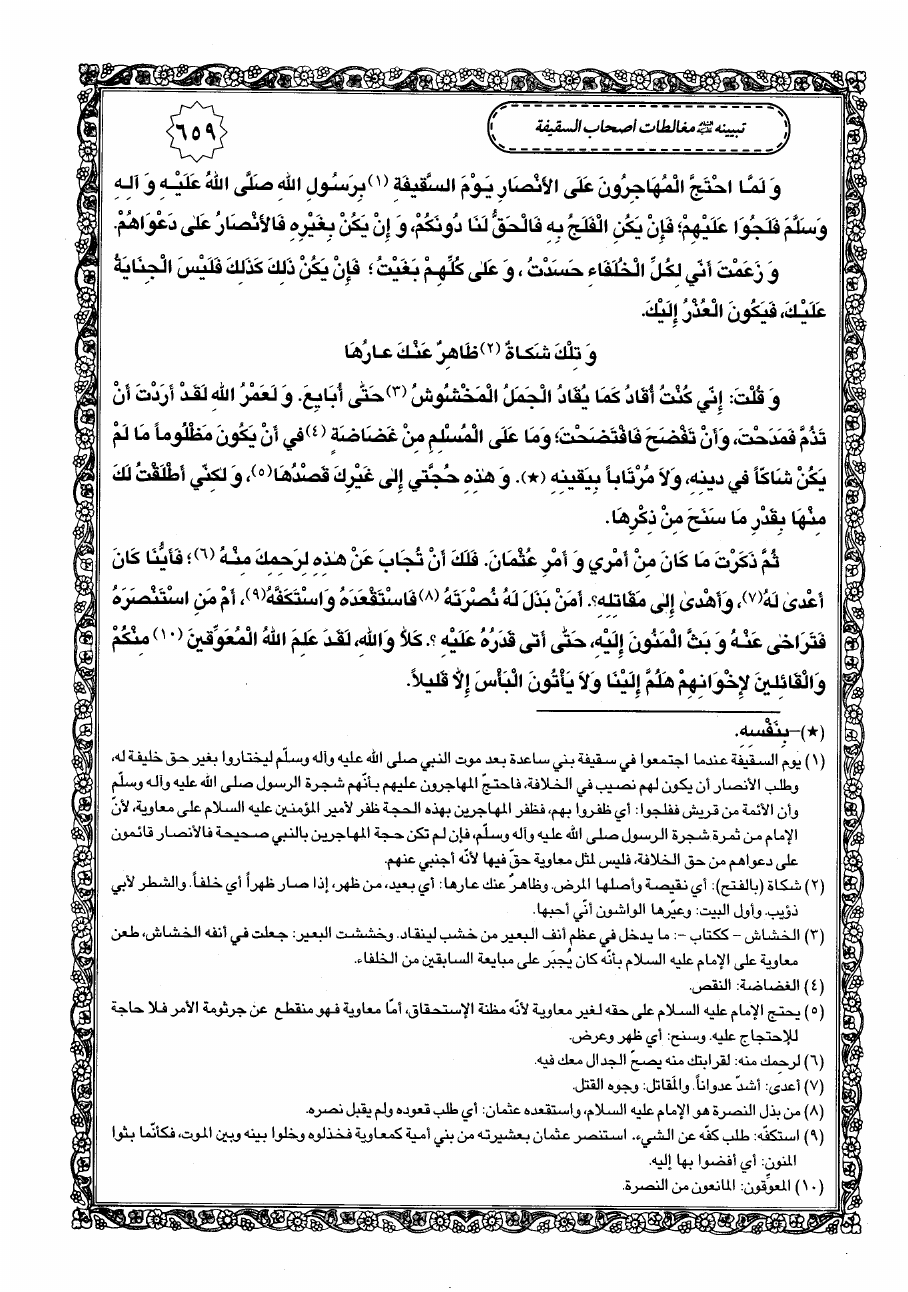 تبيينه عليه السلام مغالطات أصحاب السقيفة
٦٥٩
وَ لَمَّا احْتَجَّ الْمُهَاجِرُونَ عَلَى الأَنْصَارِ يَوْمَ السَّقيفَةِ (١) بِرَسُولِ اللهِ صَلَّى اللهُ عَلَيْهِ وَ آلِهِ
وَسَلَّمَ فَلَجُوا عَلَيْهِمْ؛ فَإِنْ يَكُنِ الْفَلَجُ بِهِ فَالْحَقُّ لَنَا دُونَكُمْ، وَ إِنْ يَكُنْ بِغَيْرِهِ فَالأَنْصَارُ عَلىٰ دَعْوَاهُمْ.
وَ زَعَمْتَ أَنّي لِكُلِّ الْخُلَفَاءِ حَسَدْتُ ، وَ عَلىٰ كُلِّهِمْ بَغَيْتُ ؛ فَإِنْ يَكُنْ ذٰلِكَ كَذٰلِكَ فَلَيْسَ الْجِنَايَةُ
عَلَيْكَ، فَيَكُونَ الْعُذْرُ إِلَيْكَ.
وَ تِلْكَ شَكَاةٌ (٢) ظَاهِرٌ عَنْكَ عَارُهَا
وَ قُلْتَ: إِنّي كُنْتُ أُقَادُ كَمَا يُقَادُ الْجَمَلُ الْمَخْشُوشُ (٣) حَتّٰى أُبَايِعَ. وَ لَعَمْرُ اللهِ لَقَدْ أَرَدْتَ أَنْ
تَذُمَّ فَمَدَحْتَ، وَأَنْ تَفْضَحَ فَافْتَضَحْتَ؛ وَمَا عَلَى الْمُسْلِمِ مِنْ غَضَاضَةٍ (٤) في أَنْ يَكُونَ مَظْلُوماً مَا لَمْ
يَكُنْ شَاكّاً في دينِهِ، وَلاَ مُرْتَاباً بِيَقينِهِ (★). وَ هٰذِهِ حُجَّتي إِلىٰ غَيْرِكَ قَصْدُهَا (٥)، وَ لٰكِنّي أَطْلَقْتُ لَكَ
مِنْهَا بِقَدْرِ مَا سَنَحَ مِنْ ذِكْرِهَا.
ثُمَّ ذَكَرْتَ مَا كَانَ مِنْ أَمْري وَ أَمْرِ عُثْمَانَ. فَلَكَ أَنْ تُجَابَ عَنْ هٰذِهِ لِرَحِمِكَ مِنْهُ (٦)؛ فَأَيُّنَا كَانَ
أَعْدىٰ لَهُ (٧)، وَأَهْدىٰ إِلىٰ مَقَاتِلِهِ؟. أَمَنْ بَذَلَ لَهُ نُصْرَتَهُ (٨) فَاسْتَقْعَدَهُ وَاسْتَكَفَّهُ (٩)، أَمْ مَنِ اسْتَنْصَرَهُ
فَتَرَاخىٰ عَنْهُ وَ بَثَّ الْمَنُونَ إِلَيْهِ، حَتّٰى أَتىٰ قَدَرُهُ عَلَيْهِ ؟. كَلاَّ وَاللهِ، لَقَدْ عَلِمَ اللهُ الْمُعَوِّقينَ (١٠) مِنْكُمْ
وَالْقَائِلينَ لإِخْوَانِهِمْ هَلُمَّ إِلَيْنَا وَلاَ يَأْتُونَ الْبَأْسَ إِلاَّ قَليلاً.
(★)-بِنَفْسِهِ.
(١) يوم السقيفة عندما اجتمعوا في سقيفة بني ساعدة بعد موت النبي صلى الله عليه وآله وسلّم ليختاروا بغير حق خليفة له،
وطلب الأنصار أن يكون لهم نصيب في الخلافة، فاحتجّ المهاجرون عليهم بأنّهم شجرة الرسول صلى الله عليه وآله وسلّم
وأن الأئمة من قريش ففلجوا: أي ظفروا بهم، فظفر المهاجرين بهذه الحجة ظفر لأمير المؤمنين عليه السلام على معاوية، لأنّ
الإمام من ثمرة شجرة الرسول صلى الله عليه وآله وسلّم، فإن لم تكن حجة المهاجرين بالنبي صحيحة فالأنصار قائمون
على دعواهم من حق الخلافة، فليس لمثل معاوية حقّ فيها لأنّه أجنبي عنهم.
(٢) شكاة (بالفتح): أي نقيصة وأصلها المرض. وظاهرٌ عنك عارها: أي بعيد، من ظهر، إذا صار ظهراً أي خلفاً. والشطر لأبي
ذؤيب. وأول البيت: وعيّرها الواشون أنّي أحبها.
(٣) الخشاش - ككتاب -: ما يدخل في عظم أنف البعير من خشب لينقاد. وخششت البعير: جعلت في أنفه الخشاش، طعن
معاوية على الإمام عليه السلام بأنّه كان يُجبَر على مبايعة السابقين من الخلفاء.
(٤) الغضاضة: النقص.
(٥) يحتج الإمام عليه السلام على حقه لغير معاوية لأنّه مظنة الإستحقاق، أمّا معاوية فهو منقطع عن جرثومة الأمر فلا حاجة
للإحتجاج عليه. وسنح: أي ظهر وعرض.
(٦) لرحمك منه: لقرابتك منه يصحّ الجدال معك فيه.
(٧) أعدى: أشدّ عدواناً. والمقاتل: وجوه القتل.
(٨) من بذل النصرة هو الإمام عليه السلام، واستقعده عثمان: أي طلب قعوده ولم يقبل نصره.
(٩) استكفّه: طلب كفّه عن الشيء. استنصر عثمان بعشيرته من بني أمية كمعاوية فخذلوه وخلوا بينه وبين الموت، فكأنّما بثوا
المنون: أي أفضوا بها إليه.
(١٠) المعوِّقون: المانعون من النصرة.